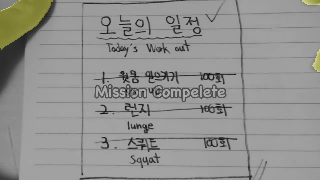 오늘의 일정
Today's Work out
1. 윗몸 일으키기 100회
Mission Compelete
2. 런지 100회
lunge
3. 스쿼트 100회
Squat